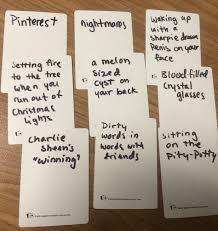 Pinterest
Nightmares
Waking up
with a
sharpie drawn
Penis on your
face
Setting fire
to the tree
when you
run out of
Christmas
lights
a melon
sized
cyst on
your back
Blood-filled
Crystal
glasses
Charlie
Sheen's
"winning"
Dirty
words in
words with
friends
Sitting
on the
Pity-Potty